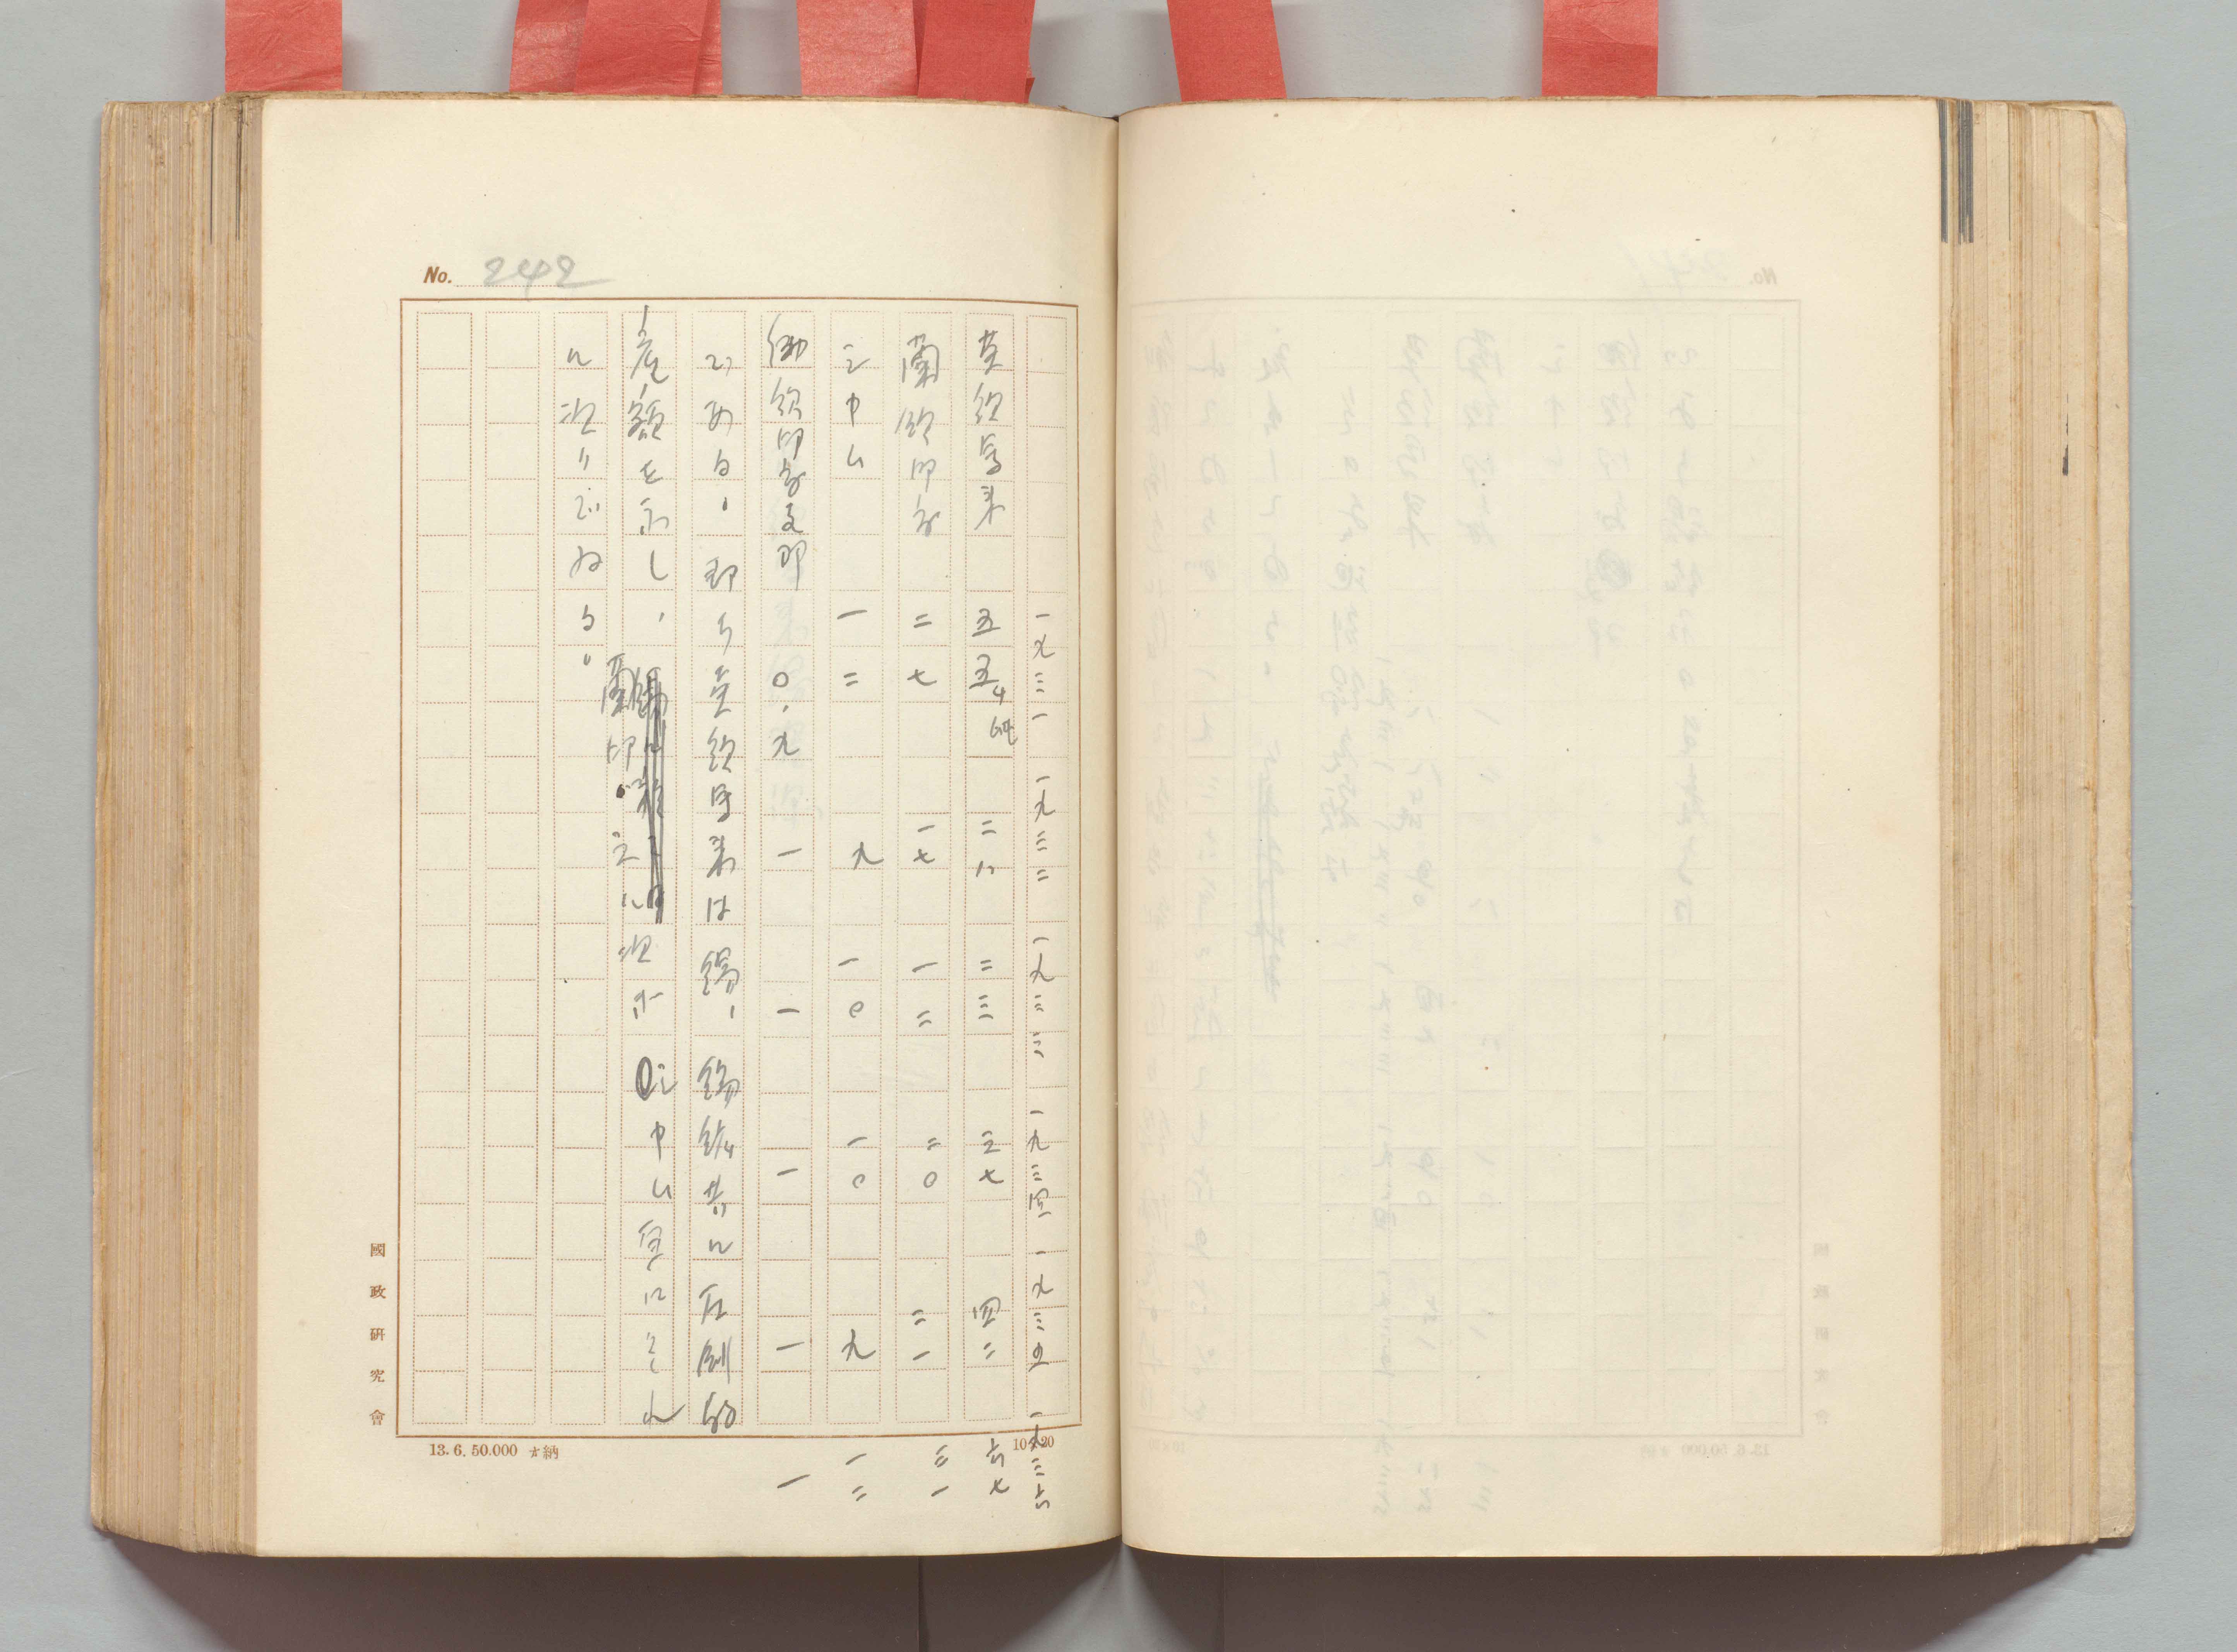 No. 242
一九三一 一九三二 一九三三 一九三四 一九三五 一九三六
英領馬来 五五 二八 二三 三七 四二 六七
蘭領印度 二七 一七 一二 二〇 二一 三一
シャム 一二 九 一〇 一〇 九 一二
佛領印度支那 〇、九 一 一 一 一 一
である、即ち英領馬来は錫、錫鉱共に圧倒的
産額を示し、蘭印。之に次ぎ シャム更にこれ
に次いでゐる。
國政研究會
13. 6. 50.000 納
10×20